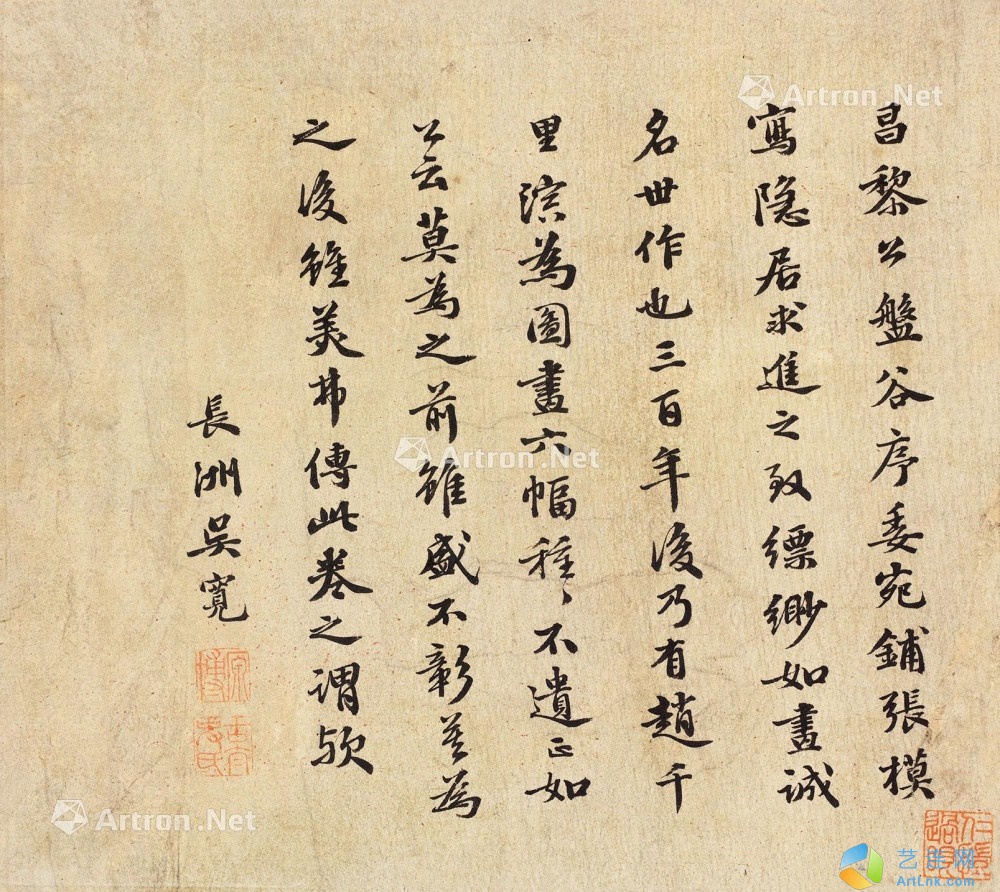 昌黎公盤谷序委宛鋪張模
寫隐居求進之致縹緲如畫誠
名世作也三百年後乃有趙千
里演為圖畫六幅種〻不遺正如
公云莫為之前雖盛不彰莫為
之後雖美弗傳此卷之謂欤
長洲吳寬
Artron.Net
Artron.Net
Artron.Net
Artron.Net
艺走网
ArtLnk.com